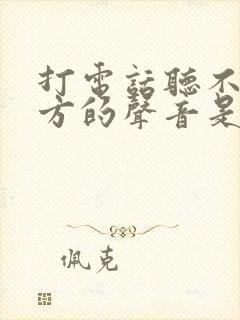 打電話聽不
方的聲音是
佩克